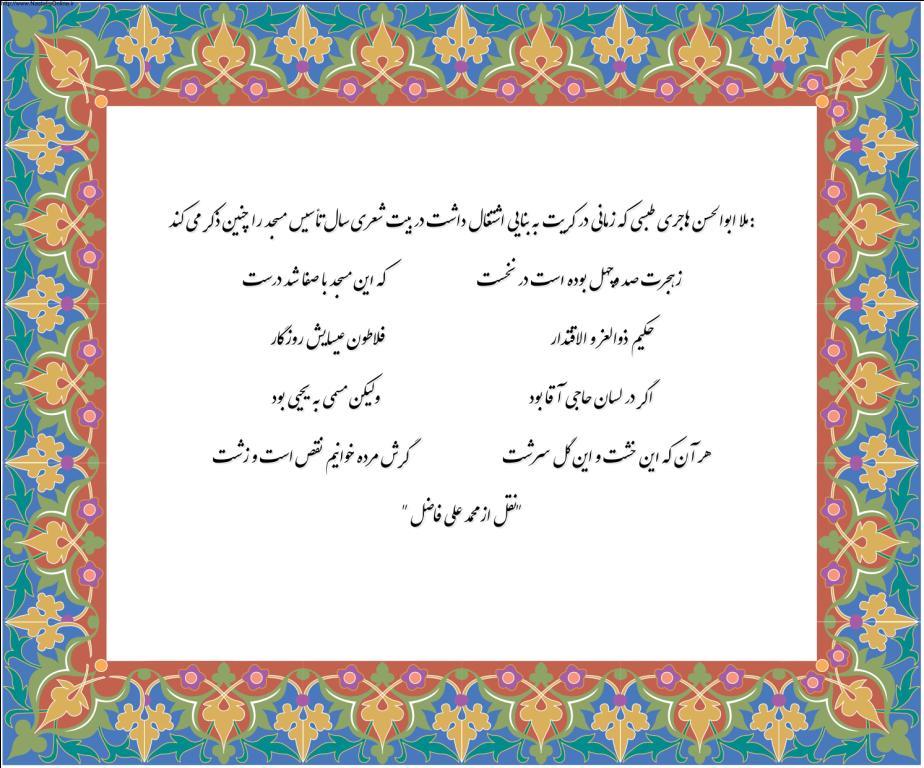 http://www.NastaliqOnline.ir
ملا ابوالحسن هاجری طبسی که زمانی در کریت به بنایی اشتغال داشت در بیت شعری سال تأسیس مسجد را چنین ذکر می کند:
زهجرت صد و چهل بوده است در نخست که این مسجد با صفا شد درست
حکیم ذوالعز و الاقتدار فلاطون عیسایش روزگار
اگر در لسان حاجی آقا بود ولیکن مسمی به یحیی بود
هر آن که این خشت و این گل سرشت گرش مرده خوانیم نقص است و زشت
"نقل از محمد علی فاضل "